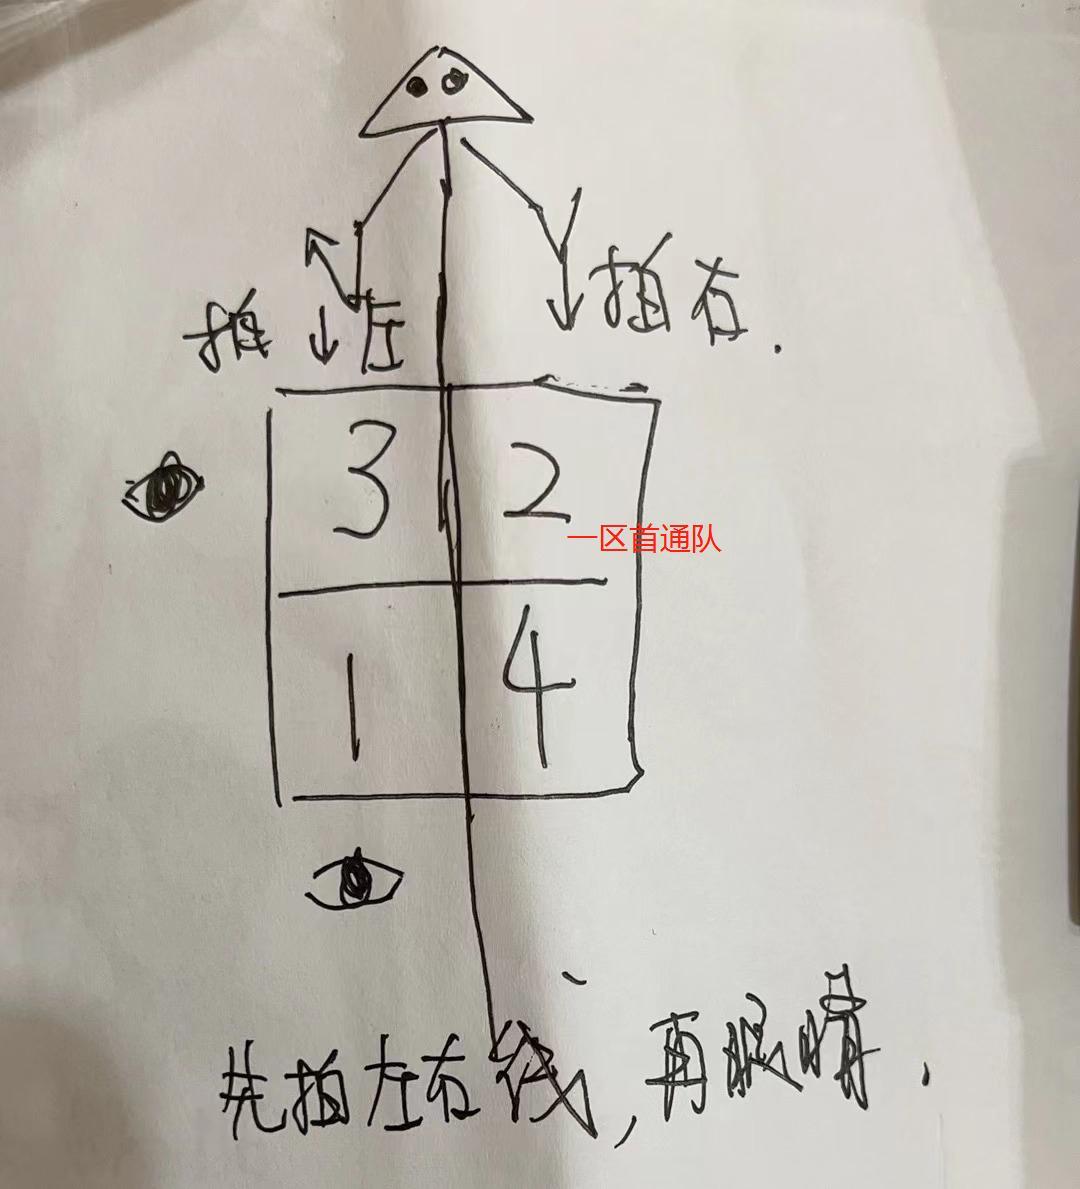 拍左
拍右.
3 2
一区首通队
1 4
先拍左右线,再眼睛.